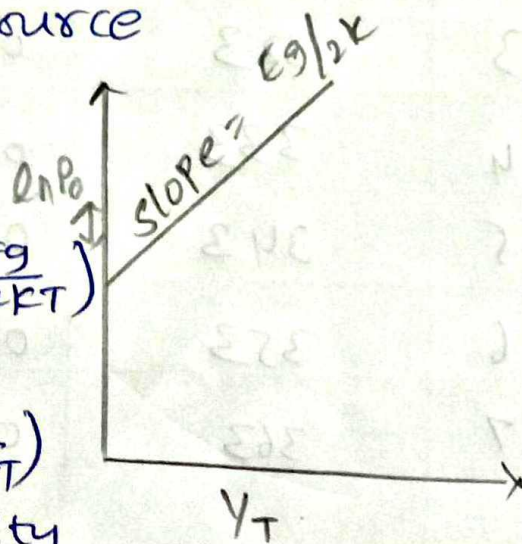 ource
slope = Eg/2K
lnρ₀
g
KT)
T)
1/T
ty